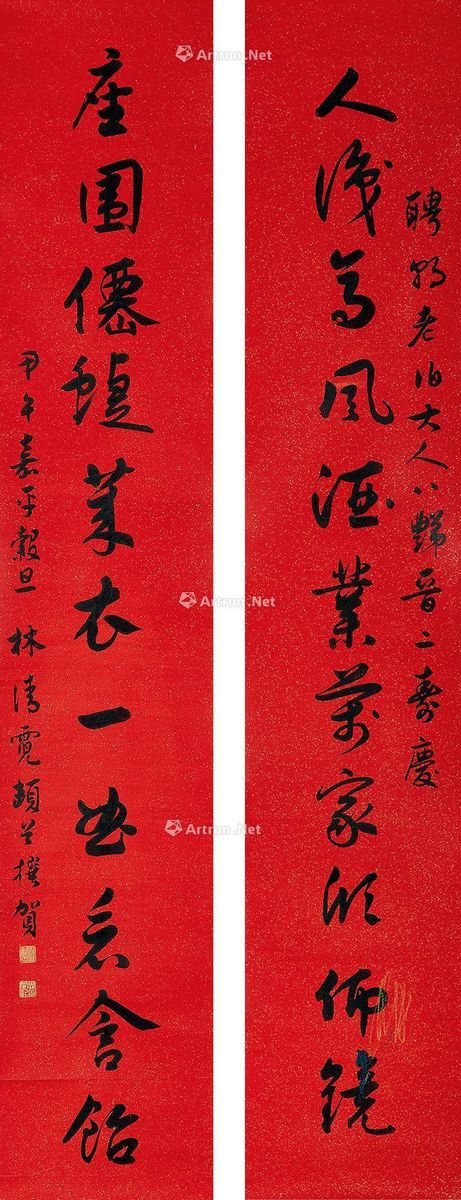 Artron.Net
Artron.Net
聘老伯大人八晋二壽慶
人高風酒業萬家欣佩鏡
座圍僊萊衣一曲含飴
甲午嘉平穀旦 林清霓頓首撰賀
Artron.Net
Artron.Net
Artron.Net
Artron.Net